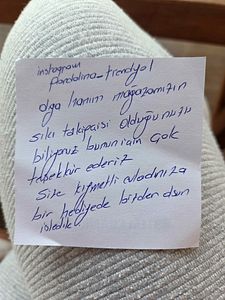 instagram
Pandalina_trendyol
olga hanım mağazamızın
sıkı takipçisi olduğunuzu
biliyoruz bunun için çok
teşekkür ederiz
Size kıymetli evladınıza
bir hediyede bizden olsun
istedik